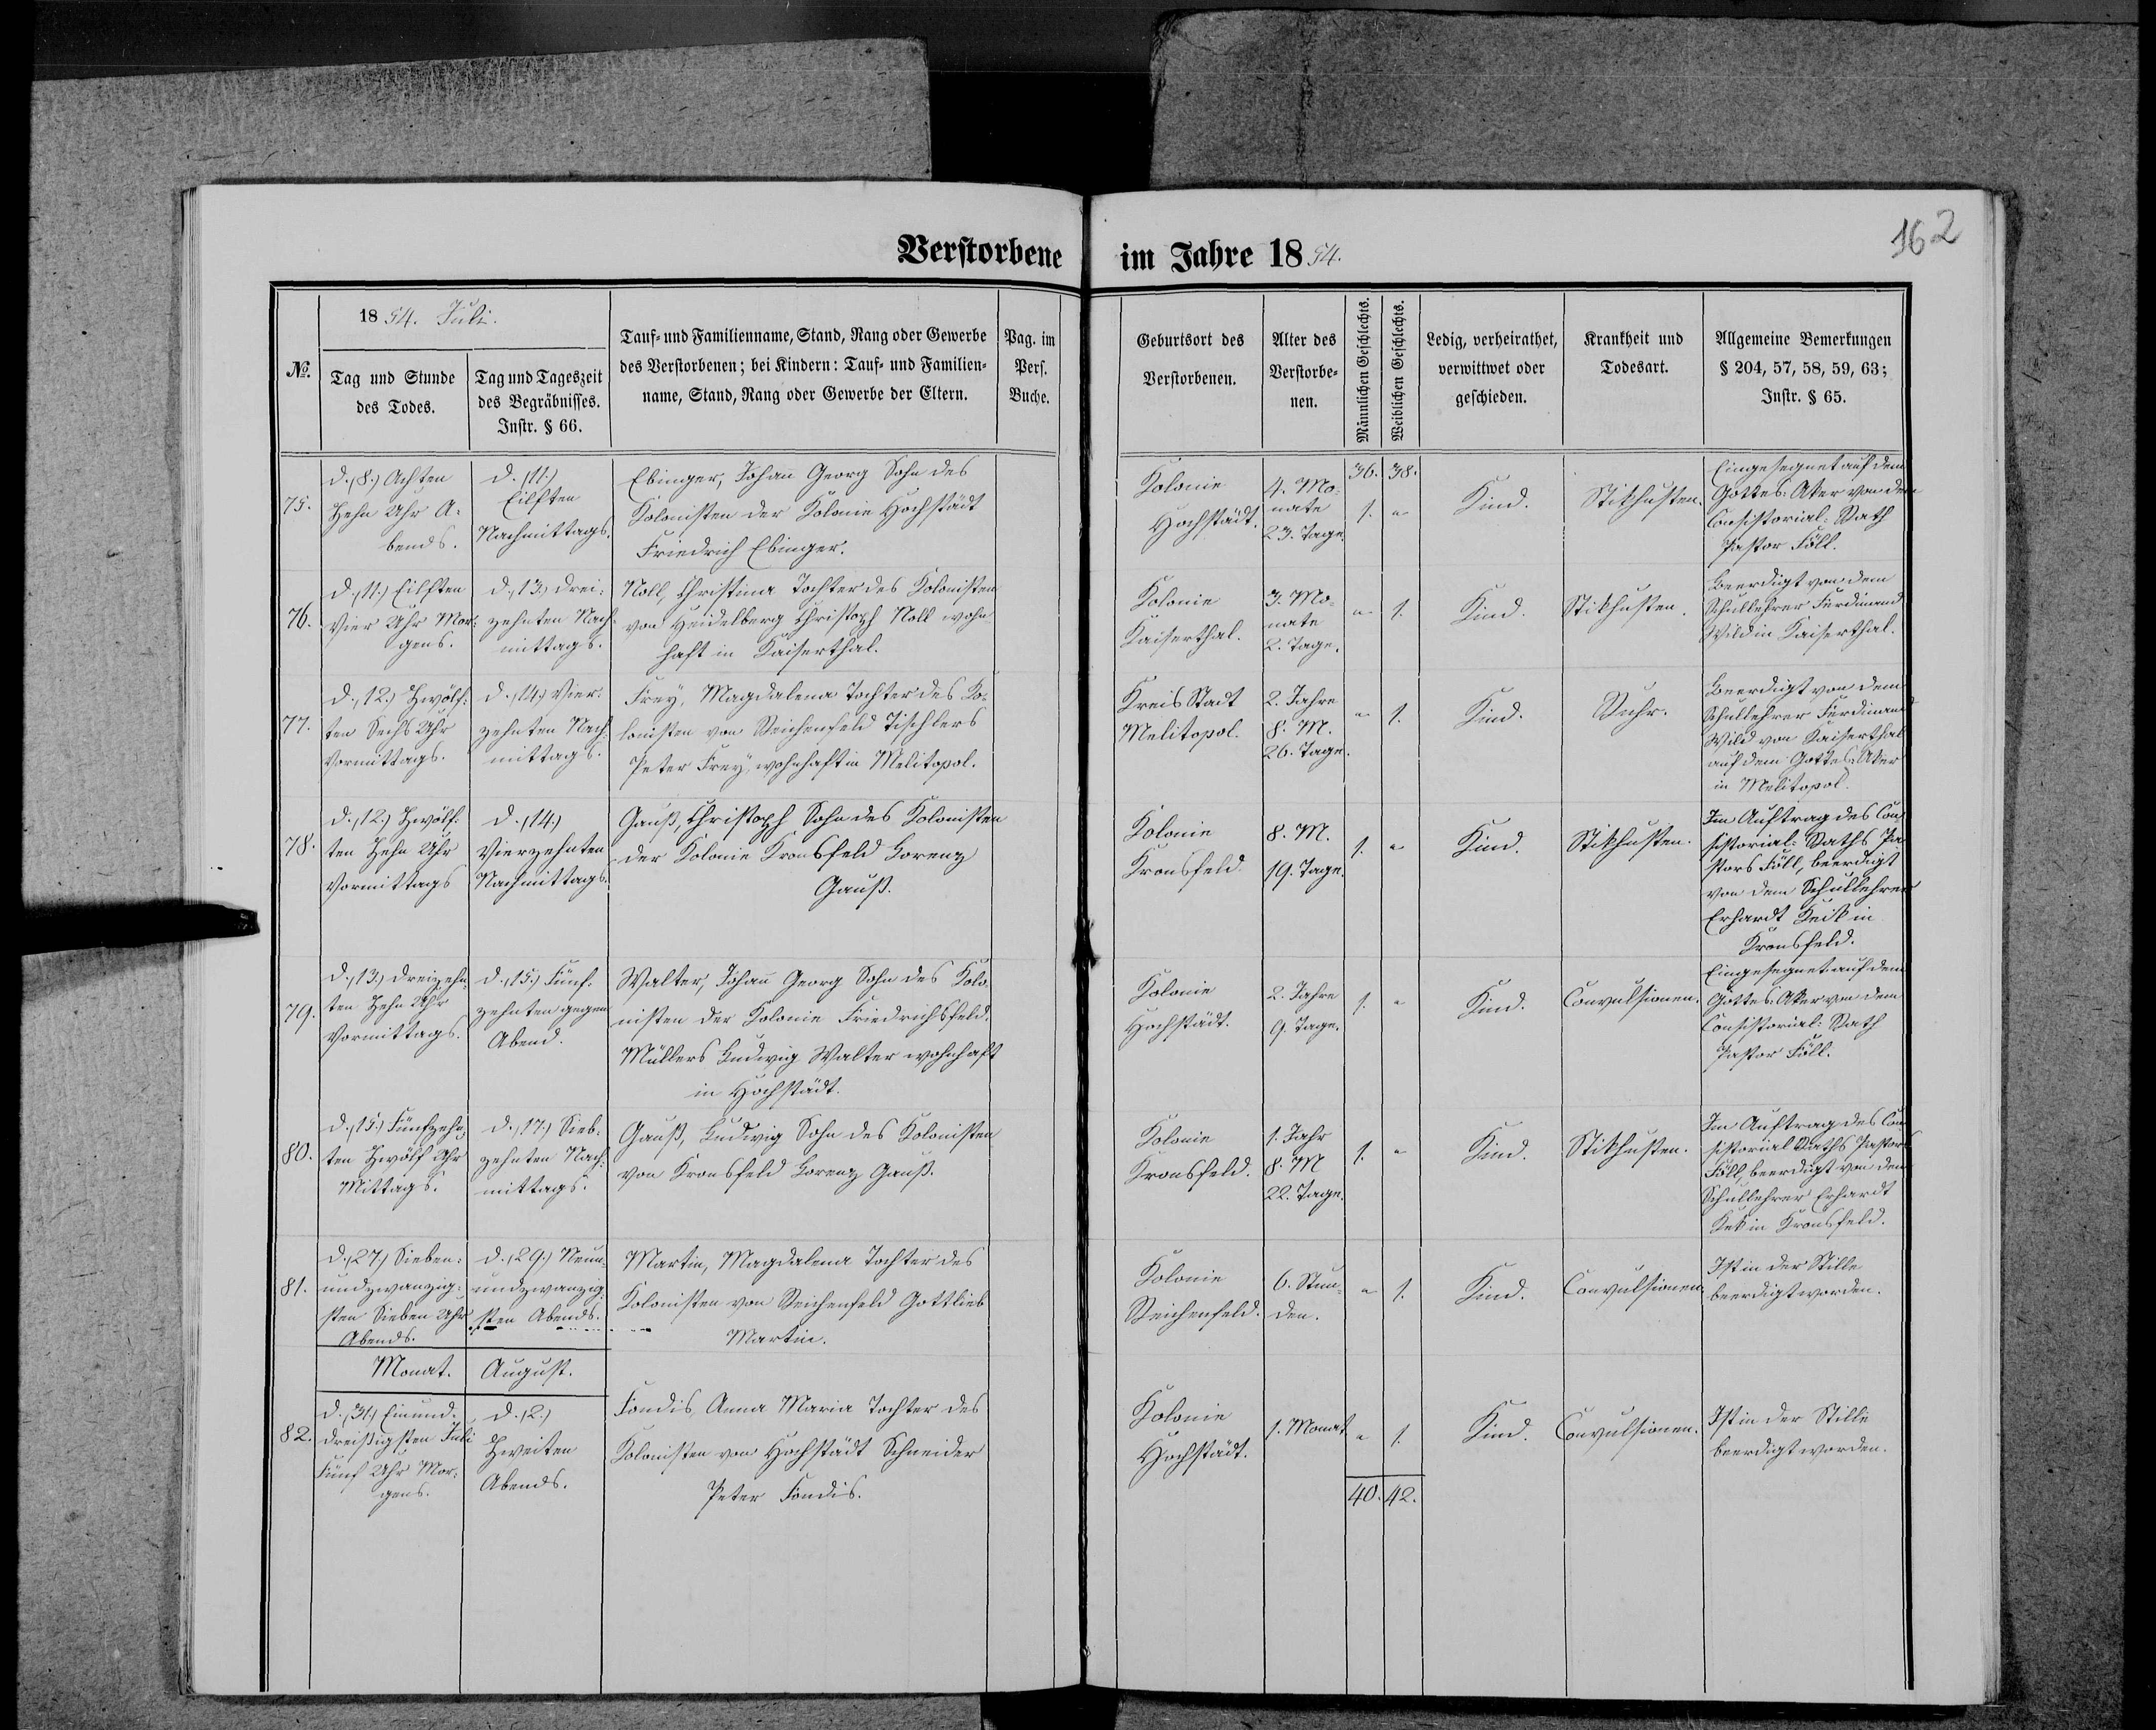 162
Verstorbene im Jahre 1854.
1854. Juli.
№.
Tag und Stunde
des Todes.
Tag und Tageszeit
des Begräbnisses.
Instr. § 66.
Tauf- und Familienname, Stand, Rang oder Gewerbe
des Verstorbenen; bei Kindern: Tauf- und Familien-
name, Stand, Rang oder Gewerbe der Eltern.
Pag. im
Pers.
Buche.
Geburtsort des
Verstorbenen.
Alter des
Verstorbe-
nen.
Männlichen Geschlechts.
Weiblichen Geschlechts.
Ledig, verheirathet,
verwittwet oder
geschieden.
Krankheit und
Todesart.
Allgemeine Bemerkungen
§ 204, 57, 58, 59, 63;
Instr. § 65.
36. 38.
75.
d. (8.) Achten
Zehn Uhr A-
bends.
d. (11.)
Eilften
Nachmittags.
Ebinger, Johan̄ Georg Sohn des
Kolonisten der Kolonie Hochstädt
Friedrich Ebinger.
Kolonie
Hochstädt.
4. Mo-
nate
23. Tage.
1. "
Kind.
Stikhusten.
Eingesegnet auf dem
Gottes-Aker von dem
Consistorial-Rath
Pastor Föll.
76.
d. (11.) Eilften
Vier Uhr Mor-
gens.
d. (13.) Drei-
zehnten Nach-
mittags.
Noll, Christina Tochter des Kolonisten
von Heidelberg Christoph Noll wohn-
haft in Kaiserthal.
Kolonie
Kaiserthal.
3. Mo-
nate
2. Tage.
" 1.
Kind.
Stikhusten.
Beerdigt von dem
Schullehrer Ferdinand
Wild in Kaiserthal.
77.
d. (12.) Zwölf-
ten Sechs Uhr
Vormittags.
d. (14.) Vier-
zehnten Nach-
mittags.
Frey, Magdalena Tochter des Ko-
lonisten von Reichenfeld Tischlers
Peter Frey, wohnhaft in Melitopol.
Kreis Stadt
Melitopol.
2. Jahre
8. M.
26. Tage.
" 1.
Kind.
Ruhr.
Beerdigt von dem
Schullehrer Ferdinand
Wild von Kaiserthal
auf dem Gottes-Aker
in Melitopol.
78.
d. (12.) Zwölf-
ten Zehn Uhr
Vormittags
d. (14.)
Vierzehnten
Nachmittags.
Gauß, Christoph Sohn des Kolonisten
der Kolonie Kronsfeld Lorenz
Gauß.
Kolonie
Kronsfeld.
8. M.
19. Tage.
1. "
Kind.
Stikhusten.
Im Auftrag des Con-
sistorial-Raths Pa-
stors Föll, beerdigt
von dem Schullehrer
Erhardt in
Kronsfeld.
79.
d. (13.) Dreizehn-
ten Zehn Uhr
Vormittags.
d. (15.) Fünf-
zehnten gegen
Abend.
Walter, Johan̄ Georg Sohn des Kolo-
nisten der Kolonie Friedrichsfeld,
Müllers Ludwig Walter wohnhaft
in Hochstädt.
Kolonie
Hochstädt.
2. Jahre
9. Tage.
1. "
Kind.
Convulsionen.
Eingesegnet auf dem
Gottes-Aker von dem
Consistorial-Rath
Pastor Föll.
80.
d. (15.) Fünfzehn-
ten Zwölf Uhr
Mittags.
d. (17.) Sieb-
zehnten Nach-
mittags.
Gauß, Ludwig Sohn des Kolonisten
von Kronsfeld Lorenz Gauß.
Kolonie
Kronsfeld.
1. Jahr
8. M
22. Tage.
1. "
Kind.
Stikhusten.
Im Auftrag des Con-
sistorial Raths Pastors
Föll, beerdigt von dem
Schullehrer Erhardt
in Kronsfeld.
81.
d. (27.) Sieben-
undzwanzig-
sten Sieben Uhr
Abends.
d. (29.) Neun-
undzwanzig-
sten Abends.
Martin, Magdalena Tochter des
Kolonisten von Reichenfeld Gottlieb
Martin.
Kolonie
Reichenfeld.
6. Stun-
den.
" 1.
Kind.
Convulsionen.
Ist in der Stille
beerdigt worden.
Monat. August.
82.
d. (31.) Einund-
dreißigsten Juli
Fünf Uhr Mor-
gens.
d. (2.)
Zweiten
Abends.
Fondis, Anna Maria Tochter des
Kolonisten von Hochstädt Schneider
Peter Fondis.
Kolonie
Hochstädt.
1. Monat
" 1.
Kind.
Convulsionen.
Ist in der Stille
beerdigt worden.
40. 42.